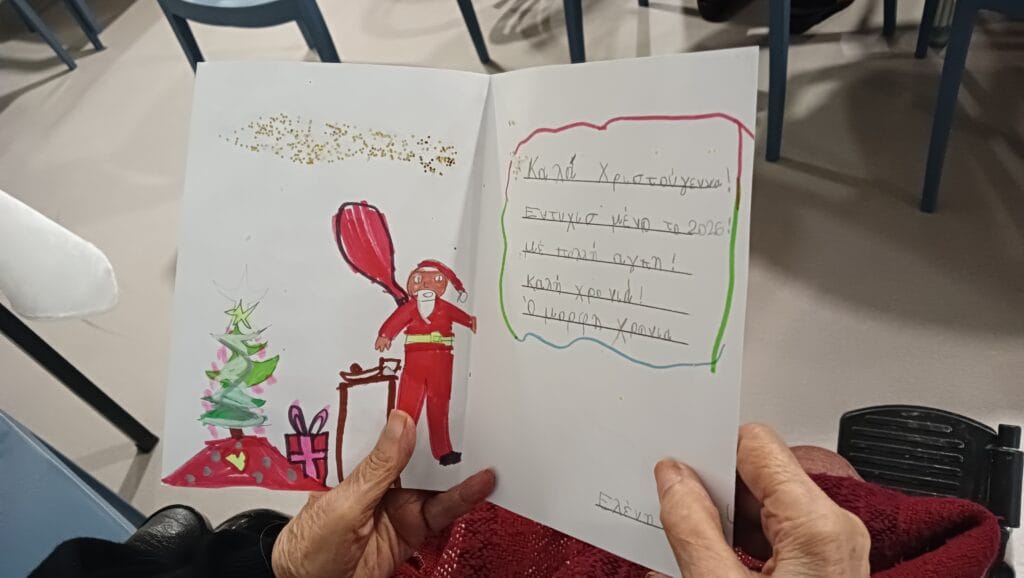 Καλά Χριστούγεννα!
Ευτυχισ μένο το 2026!
μέ πολλή αγπη!
καλή χρονιά!
Όμορφη Χρονια
Ελένη